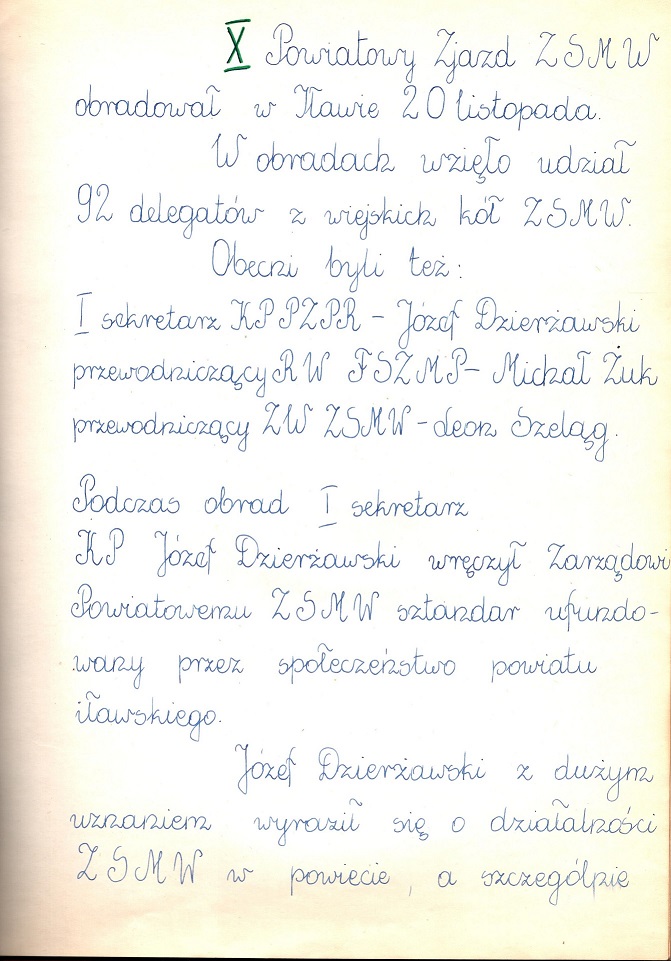 X Powiatowy Zjazd ZSMW
obradował w Iławie 20 listopada.
W obradach wzięło udział
92 delegatów z wiejskich kół ZSMW.
Obecni byli też:
I sekretarz KP PZPR - Józef Dzierżawski
przewodniczący RW FSZMP - Michał Żuk
przewodniczący ZW ZSMW - Leon Szeląg.
Podczas obrad I sekretarz
KP Józef Dzierżawski wręczył Zarządowi
Powiatowemu ZSMW sztandar ufundo-
wany przez społeczeństwo powiatu
iławskiego.
Józef Dzierżawski z dużym
uznaniem wyraził się o działalności
ZSMW w powiecie, a szczególnie